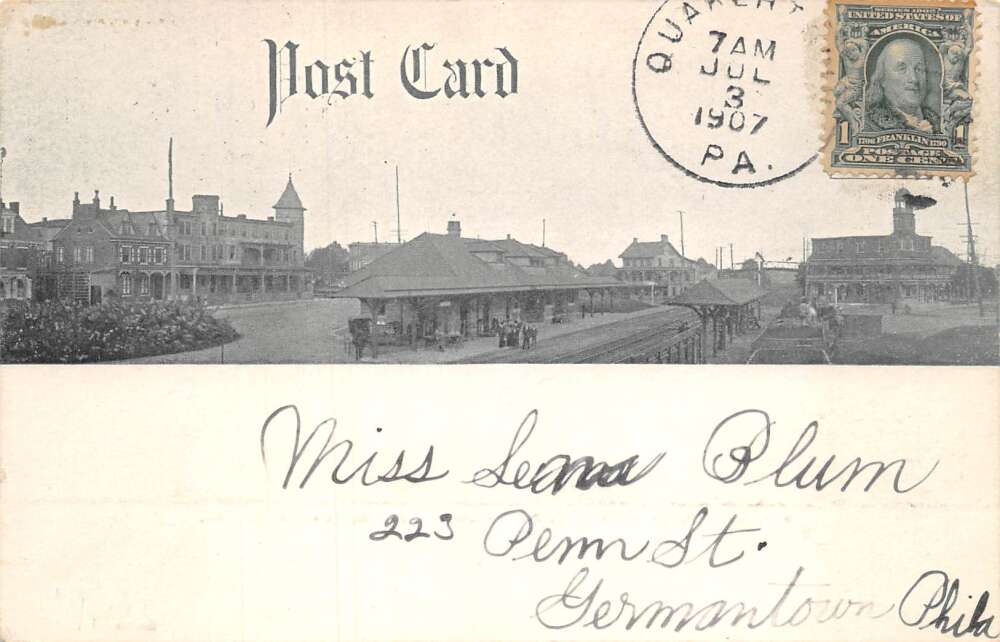 Post Card
QUAKERT
7 AM
JUL
3
1907
PA.
SERIES 1902
UNITED STATES OF
AMERICA
1
1
1706 FRANKLIN 1790
POSTAGE
ONE CENT
Miss Plum
223 Penn St.
Germantown Phila